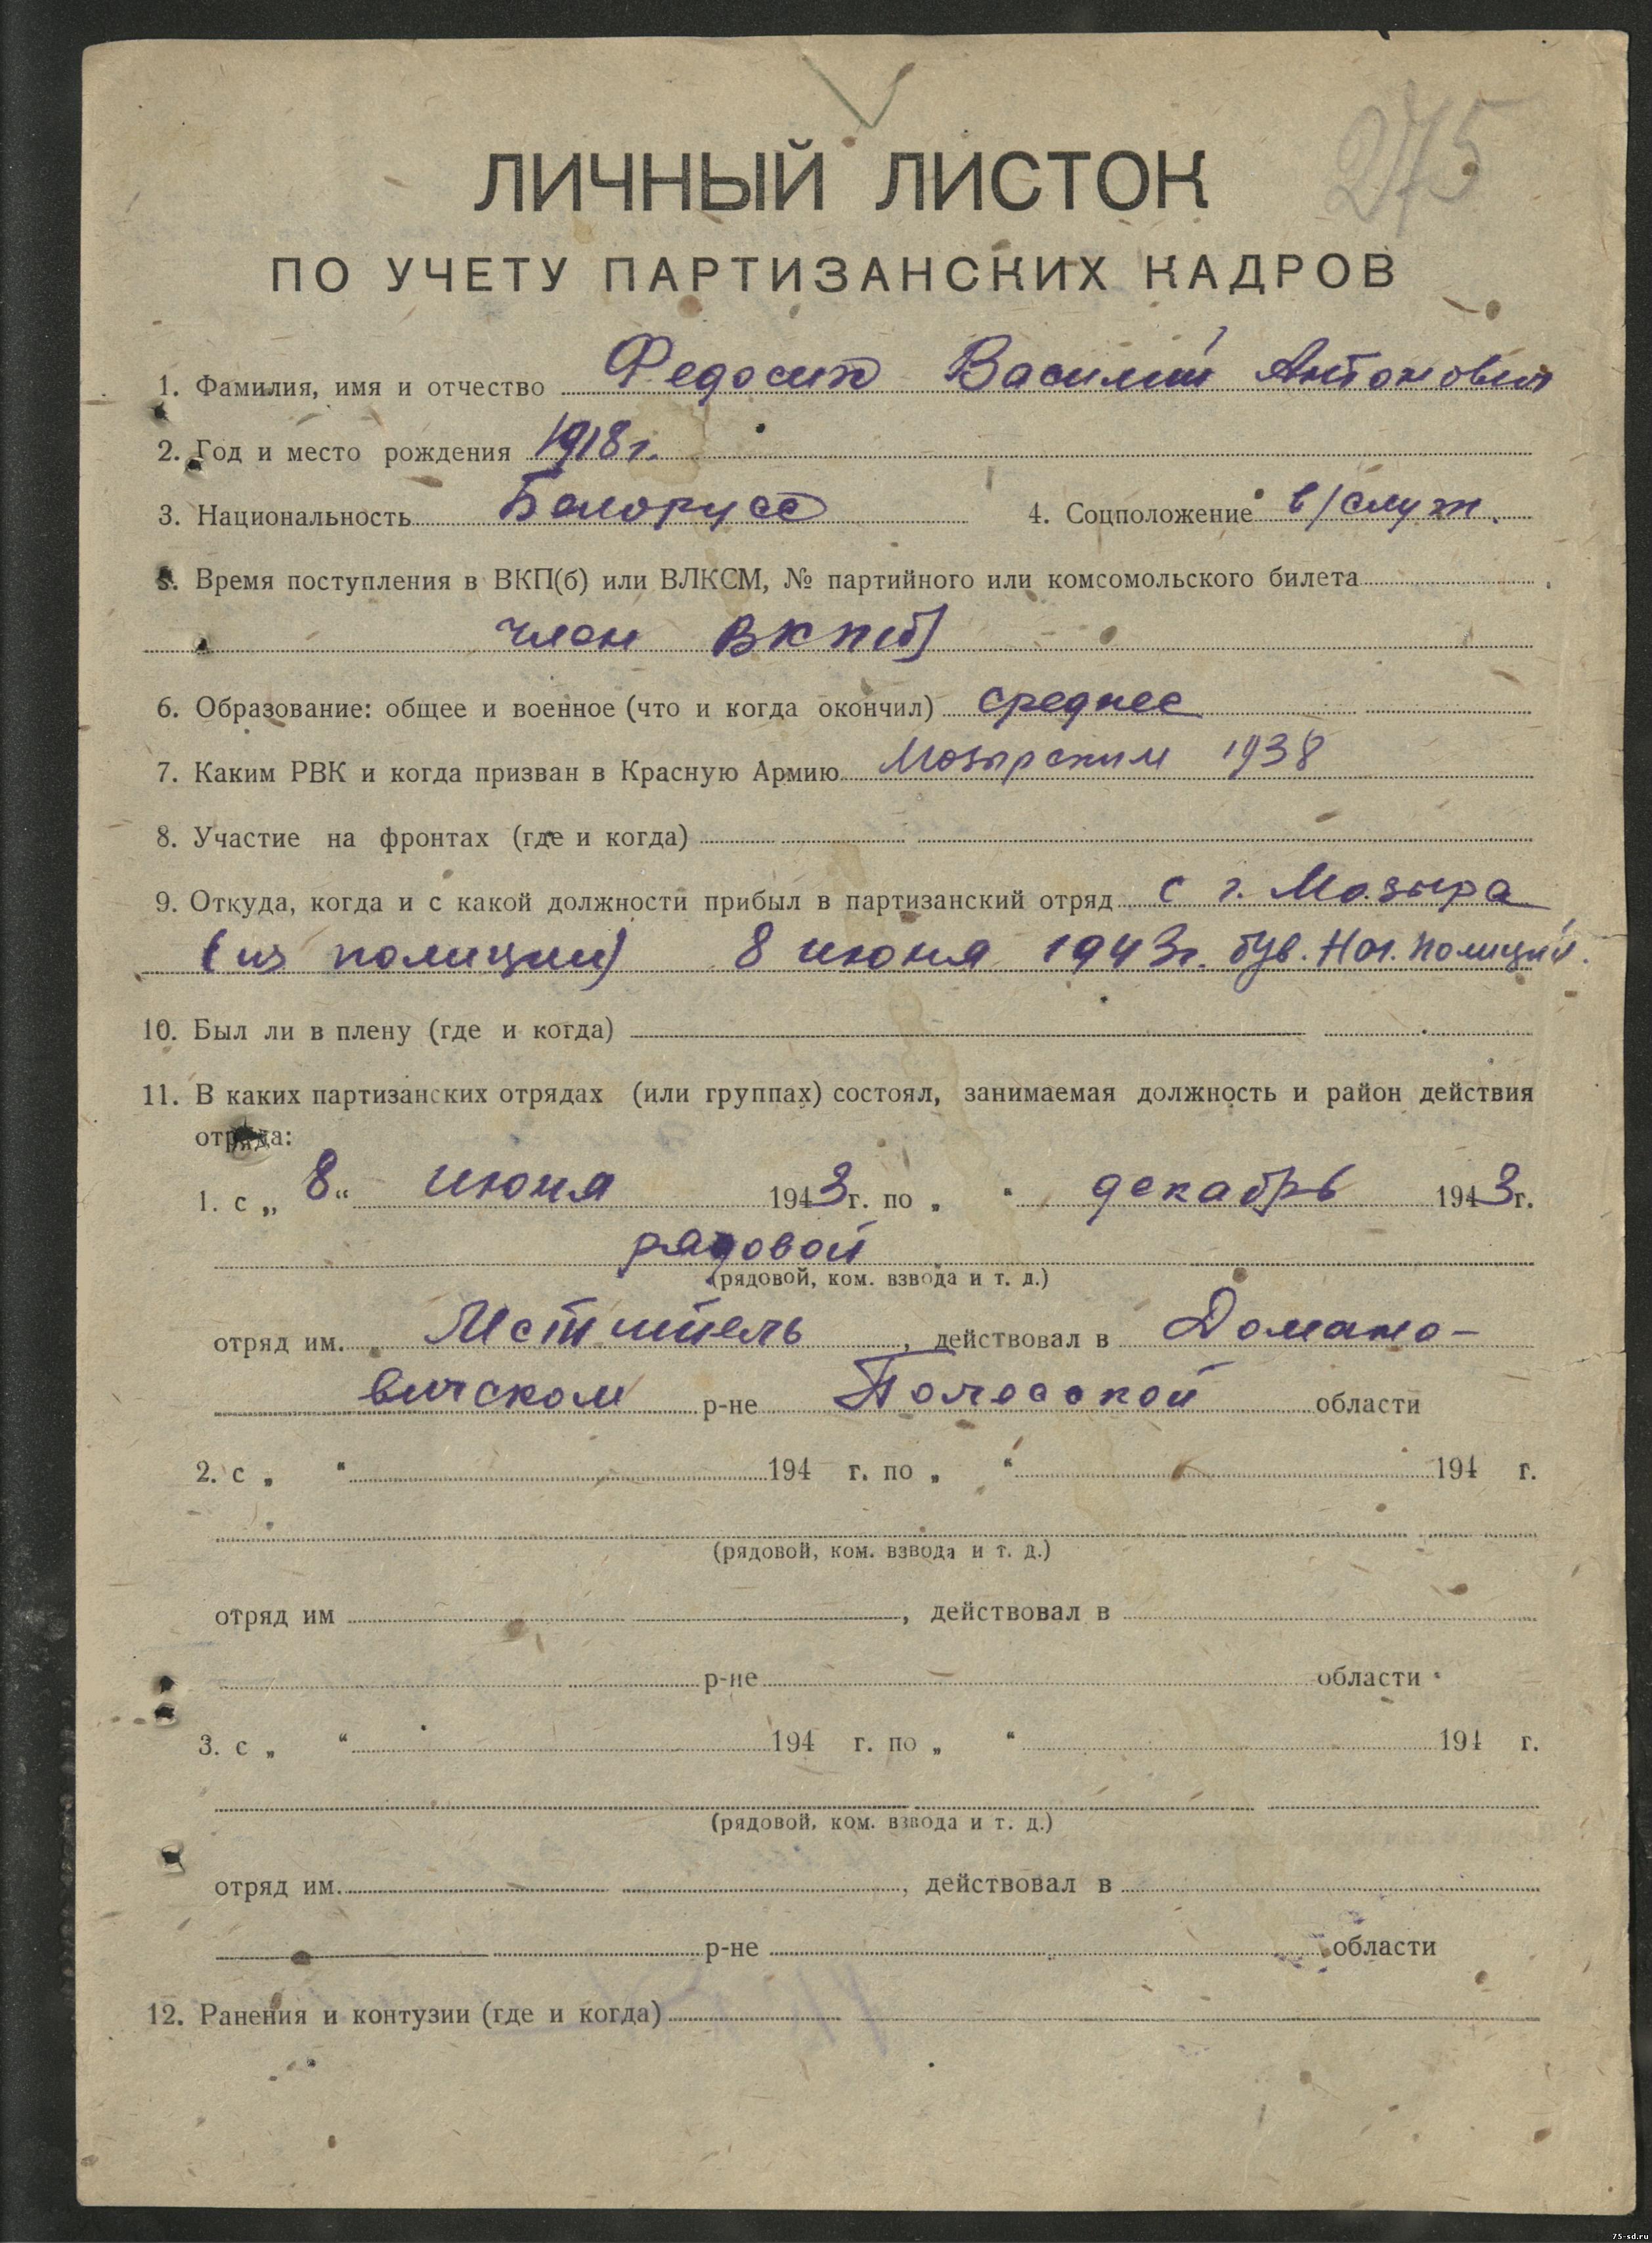 275
ЛИЧНЫЙ ЛИСТОК
ПО УЧЕТУ ПАРТИЗАНСКИХ КАДРОВ
1. Фамилия, имя и отчество Федосик Василий Антонович
2. Год и место рождения 1918 г.
3. Национальность Белорусс 4. Соцположение в/служ.
5. Время поступления в ВКП(б) или ВЛКСМ, № партийного или комсомольского билета
член ВКП(б)
6. Образование: общее и военное (что и когда окончил) среднее
7. Каким РВК и когда призван в Красную Армию Мозырским 1938
8. Участие на фронтах (где и когда)
9. Откуда, когда и с какой должности прибыл в партизанский отряд с г. Мозыра
(из полиции) 8 июня 1943 г. быв. Нач. полиции.
10. Был ли в плену (где и когда)
11. В каких партизанских отрядах (или группах) состоял, занимаемая должность и район действия
отряда:
1. с „ 8 “ июня 1943 г. по „ “ декабрь 1943 г.
рядовой
(рядовой, ком. взвода и т. д.)
отряд им. Мститель, действовал в Домано-
вичском р-не Полесской области
2. с „ “ 194 г. по „ “ 194 г.
(рядовой, ком. взвода и т. д.)
отряд им , действовал в
р-не области
3. с „ “ 194 г. по „ “ 194 г.
(рядовой, ком. взвода и т. д.)
отряд им. , действовал в
р-не области
12. Ранения и контузии (где и когда)
75-sd.ru